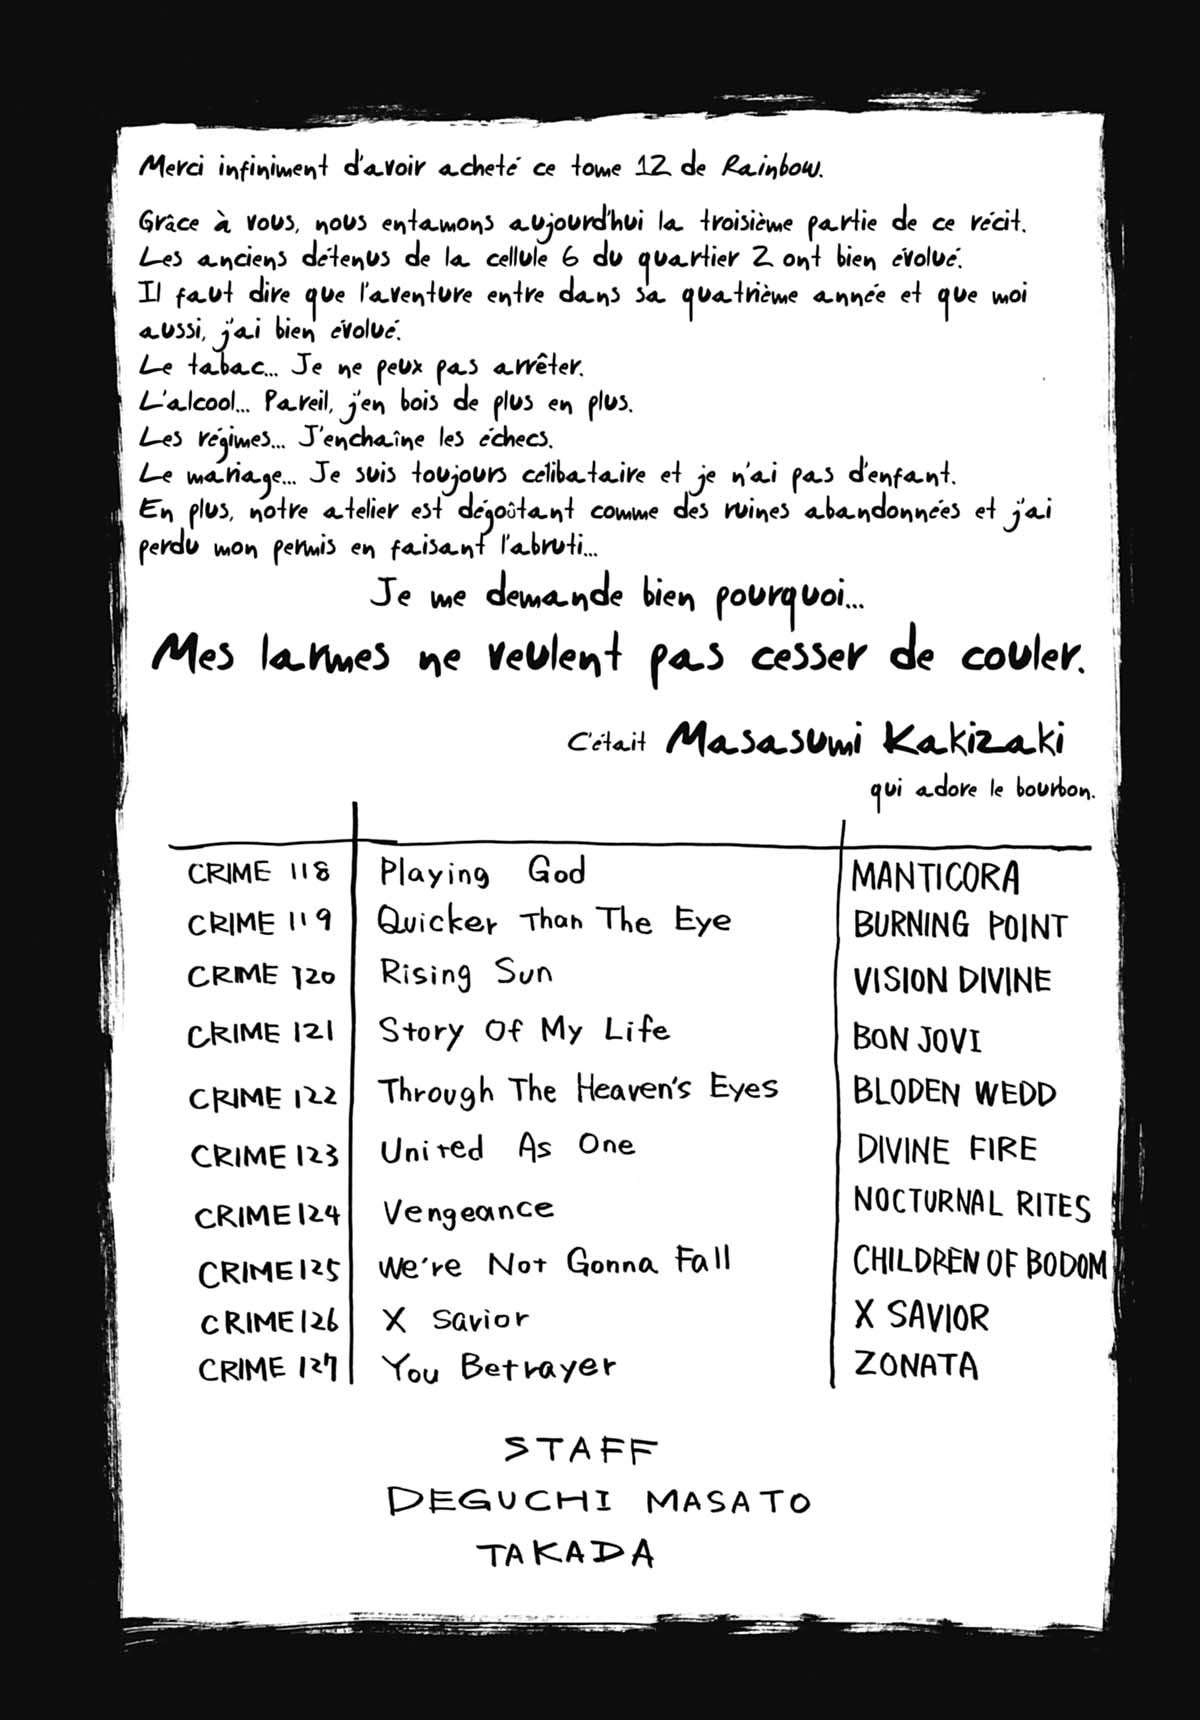 Merci infiniment d'avoir acheté ce tome 12 de Rainbow.
Grâce à vous, nous entamons aujourd'hui la troisième partie de ce récit.
Les anciens détenus de la cellule 6 du quartier 2 ont bien évolué.
Il faut dire que l'aventure entre dans sa quatrième année et que moi
aussi, j'ai bien évolué.
Le tabac... Je ne peux pas arrêter.
L'alcool... Pareil, j'en bois de plus en plus.
Les régimes... J'enchaîne les échecs.
Le mariage... Je suis toujours célibataire et je n'ai pas d'enfant.
En plus, notre atelier est dégoûtant comme des ruines abandonnées et j'ai
perdu mon permis en faisant l'abruti...
Je me demande bien pourquoi...
Mes larmes ne veulent pas cesser de couler.
C'était Masasumi Kakizaki
qui adore le bourbon.
CRIME 118 Playing God MANTICORA
CRIME 119 Quicker Than The Eye BURNING POINT
CRIME 120 Rising Sun VISION DIVINE
CRIME 121 Story Of My Life BON JOVI
CRIME 122 Through The Heaven's Eyes BLODEN WEDD
CRIME 123 United As One DIVINE FIRE
CRIME 124 Vengeance NOCTURNAL RITES
CRIME 125 We're Not Gonna Fall CHILDREN OF BODOM
CRIME 126 X Savior X SAVIOR
CRIME 127 You Betrayer ZONATA
STAFF
DEGUCHI MASATO
TAKADA